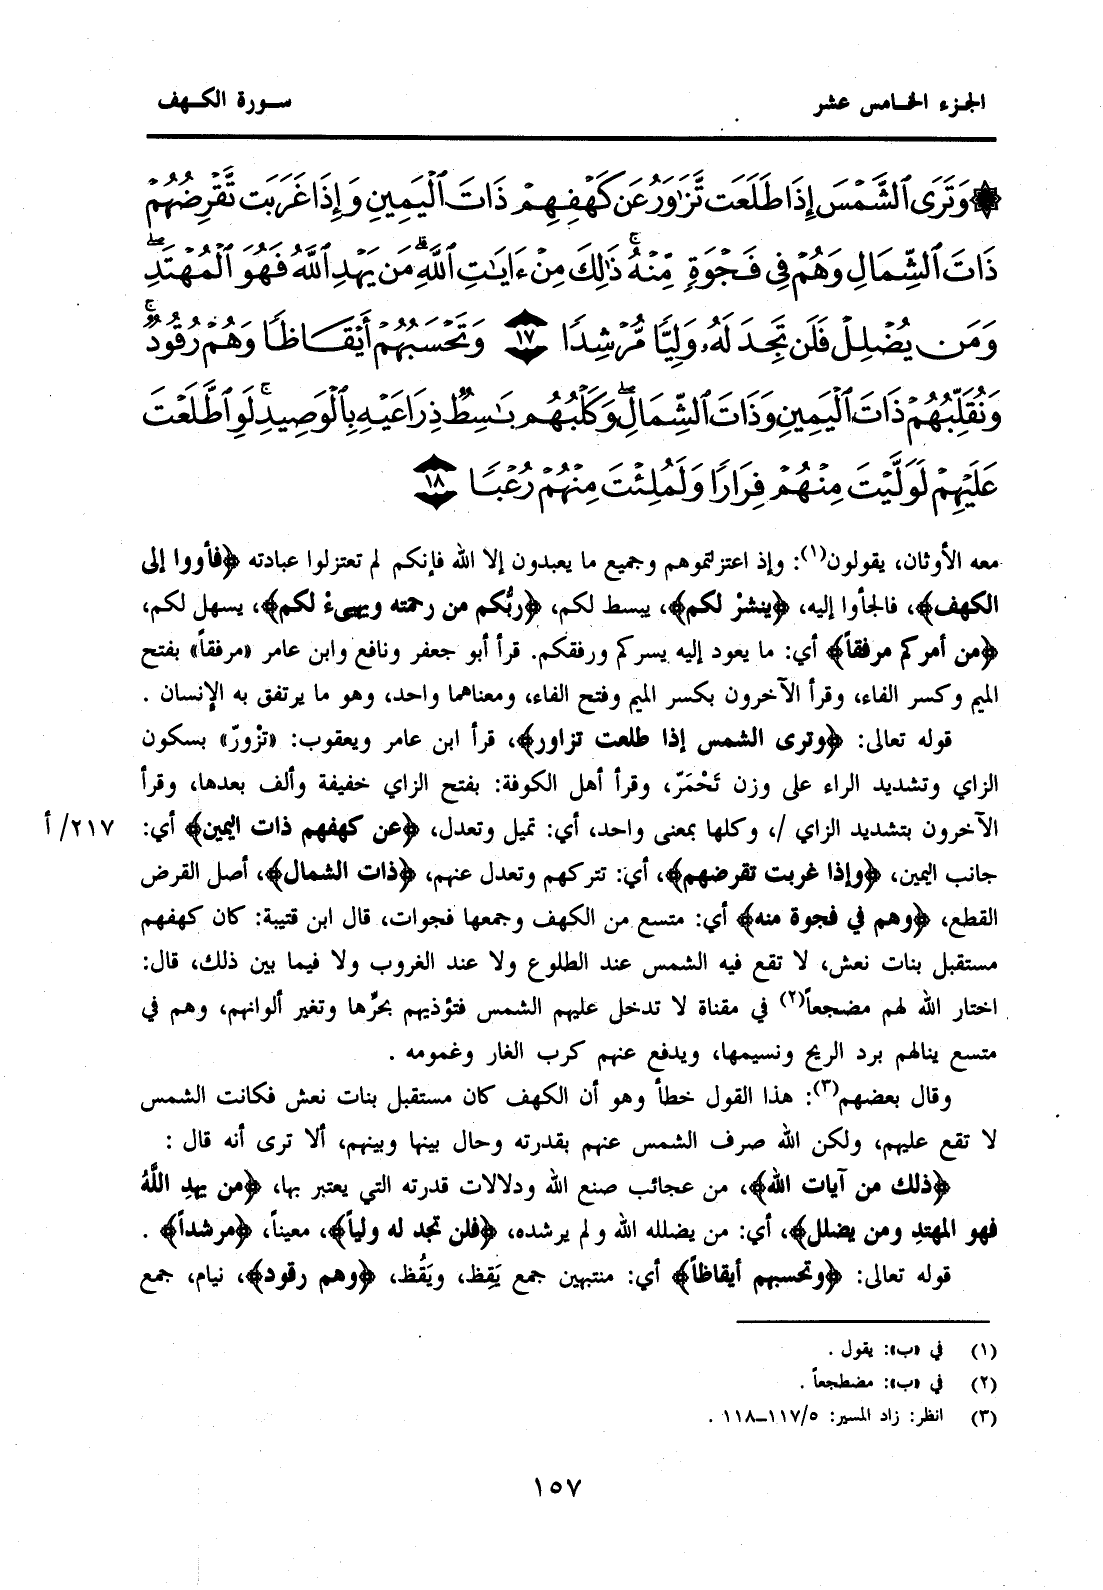 الجزء الخامس عشر
سورة الكهف
۞ وَتَرَى ٱلشَّمْسَ إِذَا طَلَعَت تَّزَٰوَرُ عَن كَهْفِهِمْ ذَاتَ ٱلْيَمِينِ وَإِذَا غَرَبَت تَّقْرِضُهُمْ
ذَاتَ ٱلشِّمَالِ وَهُمْ فِى فَجْوَةٍ مِّنْهُ ۚ ذَٰلِكَ مِنْ ءَايَٰتِ ٱللَّهِ ۗ مَن يَهْدِ ٱللَّهُ فَهُوَ ٱلْمُهْتَدِ ۖ
وَمَن يُضْلِلْ فَلَن تَجِدَ لَهُۥ وَلِيًّا مُّرْشِدًا ١٧ وَتَحْسَبُهُمْ أَيْقَاظًا وَهُمْ رُقُودٌ ۚ
وَنُقَلِّبُهُمْ ذَاتَ ٱلْيَمِينِ وَذَاتَ ٱلشِّمَالِ ۖ وَكَلْبُهُم بَٰسِطٌ ذِرَاعَيْهِ بِٱلْوَصِيدِ ۚ لَوِ ٱطَّلَعْتَ
عَلَيْهِمْ لَوَلَّيْتَ مِنْهُمْ فِرَارًا وَلَمُلِئْتَ مِنْهُمْ رُعْبًا ١٨
معه الأوثان، يقولون(١): وإذ اعتزلتموهم وجميع ما يعبدون إلا الله فإنكم لم تعتزلوا عبادته ﴿فأووا إلى
الكهف﴾، فالجأوا إليه، ﴿ينشرْ لكم﴾، يبسط لكم، ﴿ربُّكم من رحمته ويهيىءْ لكم﴾، يسهل لكم،
﴿من أمركم مرفقاً﴾ أي: ما يعود إليه يسركم ورفقكم. قرأ أبو جعفر ونافع وابن عامر «مرفقاً» بفتح
الميم وكسر الفاء، وقرأ الآخرون بكسر الميم وفتح الفاء، ومعناهما واحد، وهو ما يرتفق به الإنسان .
قوله تعالى: ﴿وترى الشمس إذا طلعت تزاور﴾، قرأ ابن عامر ويعقوب: «تزْورّ» بسكون
الزاي وتشديد الراء على وزن تَحْمَرّ، وقرأ أهل الكوفة: بفتح الزاي خفيفة وألف بعدها، وقرأ
الآخرون بتشديد الزاي /، وكلها بمعنى واحد، أي: تميل وتعدل، ﴿عن كهفهم ذات اليمين﴾ أي:
٢١٧/ أ
جانب اليمين، ﴿وإذا غربت تقرضهم﴾، أي: تتركهم وتعدل عنهم، ﴿ذات الشمال﴾، أصل القرض
القطع، ﴿وهم في فجوة منه﴾ أي: متسع من الكهف وجمعها فجوات، قال ابن قتيبة: كان كهفهم
مستقبل بنات نعش، لا تقع فيه الشمس عند الطلوع ولا عند الغروب ولا فيما بين ذلك، قال:
اختار الله لهم مضجعاً(٢) في مقناة لا تدخل عليهم الشمس فتؤذيهم بحرِّها وتغير ألوانهم، وهم في
متسع ينالهم برد الريح ونسيمها، ويدفع عنهم كرب الغار وغمومه .
وقال بعضهم(٣): هذا القول خطأ وهو أن الكهف كان مستقبل بنات نعش فكانت الشمس
لا تقع عليهم، ولكن الله صرف الشمس عنهم بقدرته وحال بينها وبينهم، ألا ترى أنه قال :
﴿ذلك من آيات الله﴾، من عجائب صنع الله ودلالات قدرته التي يعتبر بها، ﴿من يهدِ اللَّهُ
فهو المهتدِ ومن يضلل﴾، أي: من يضلله الله ولم يرشده، ﴿فلن تجد له ولياً﴾، معيناً، ﴿مرشداً﴾ .
قوله تعالى: ﴿وتحسبهم أيقاظاً﴾ أي: منتبهين جمع يَقِظ، ويَقُظ، ﴿وهم رقود﴾، نيام، جمع
(١) في «ب»: يقول .
(٢) في «ب»: مضطجعاً .
(٣) انظر: زاد المسير: ٥/١١٧ــ١١٨ .
١٥٧